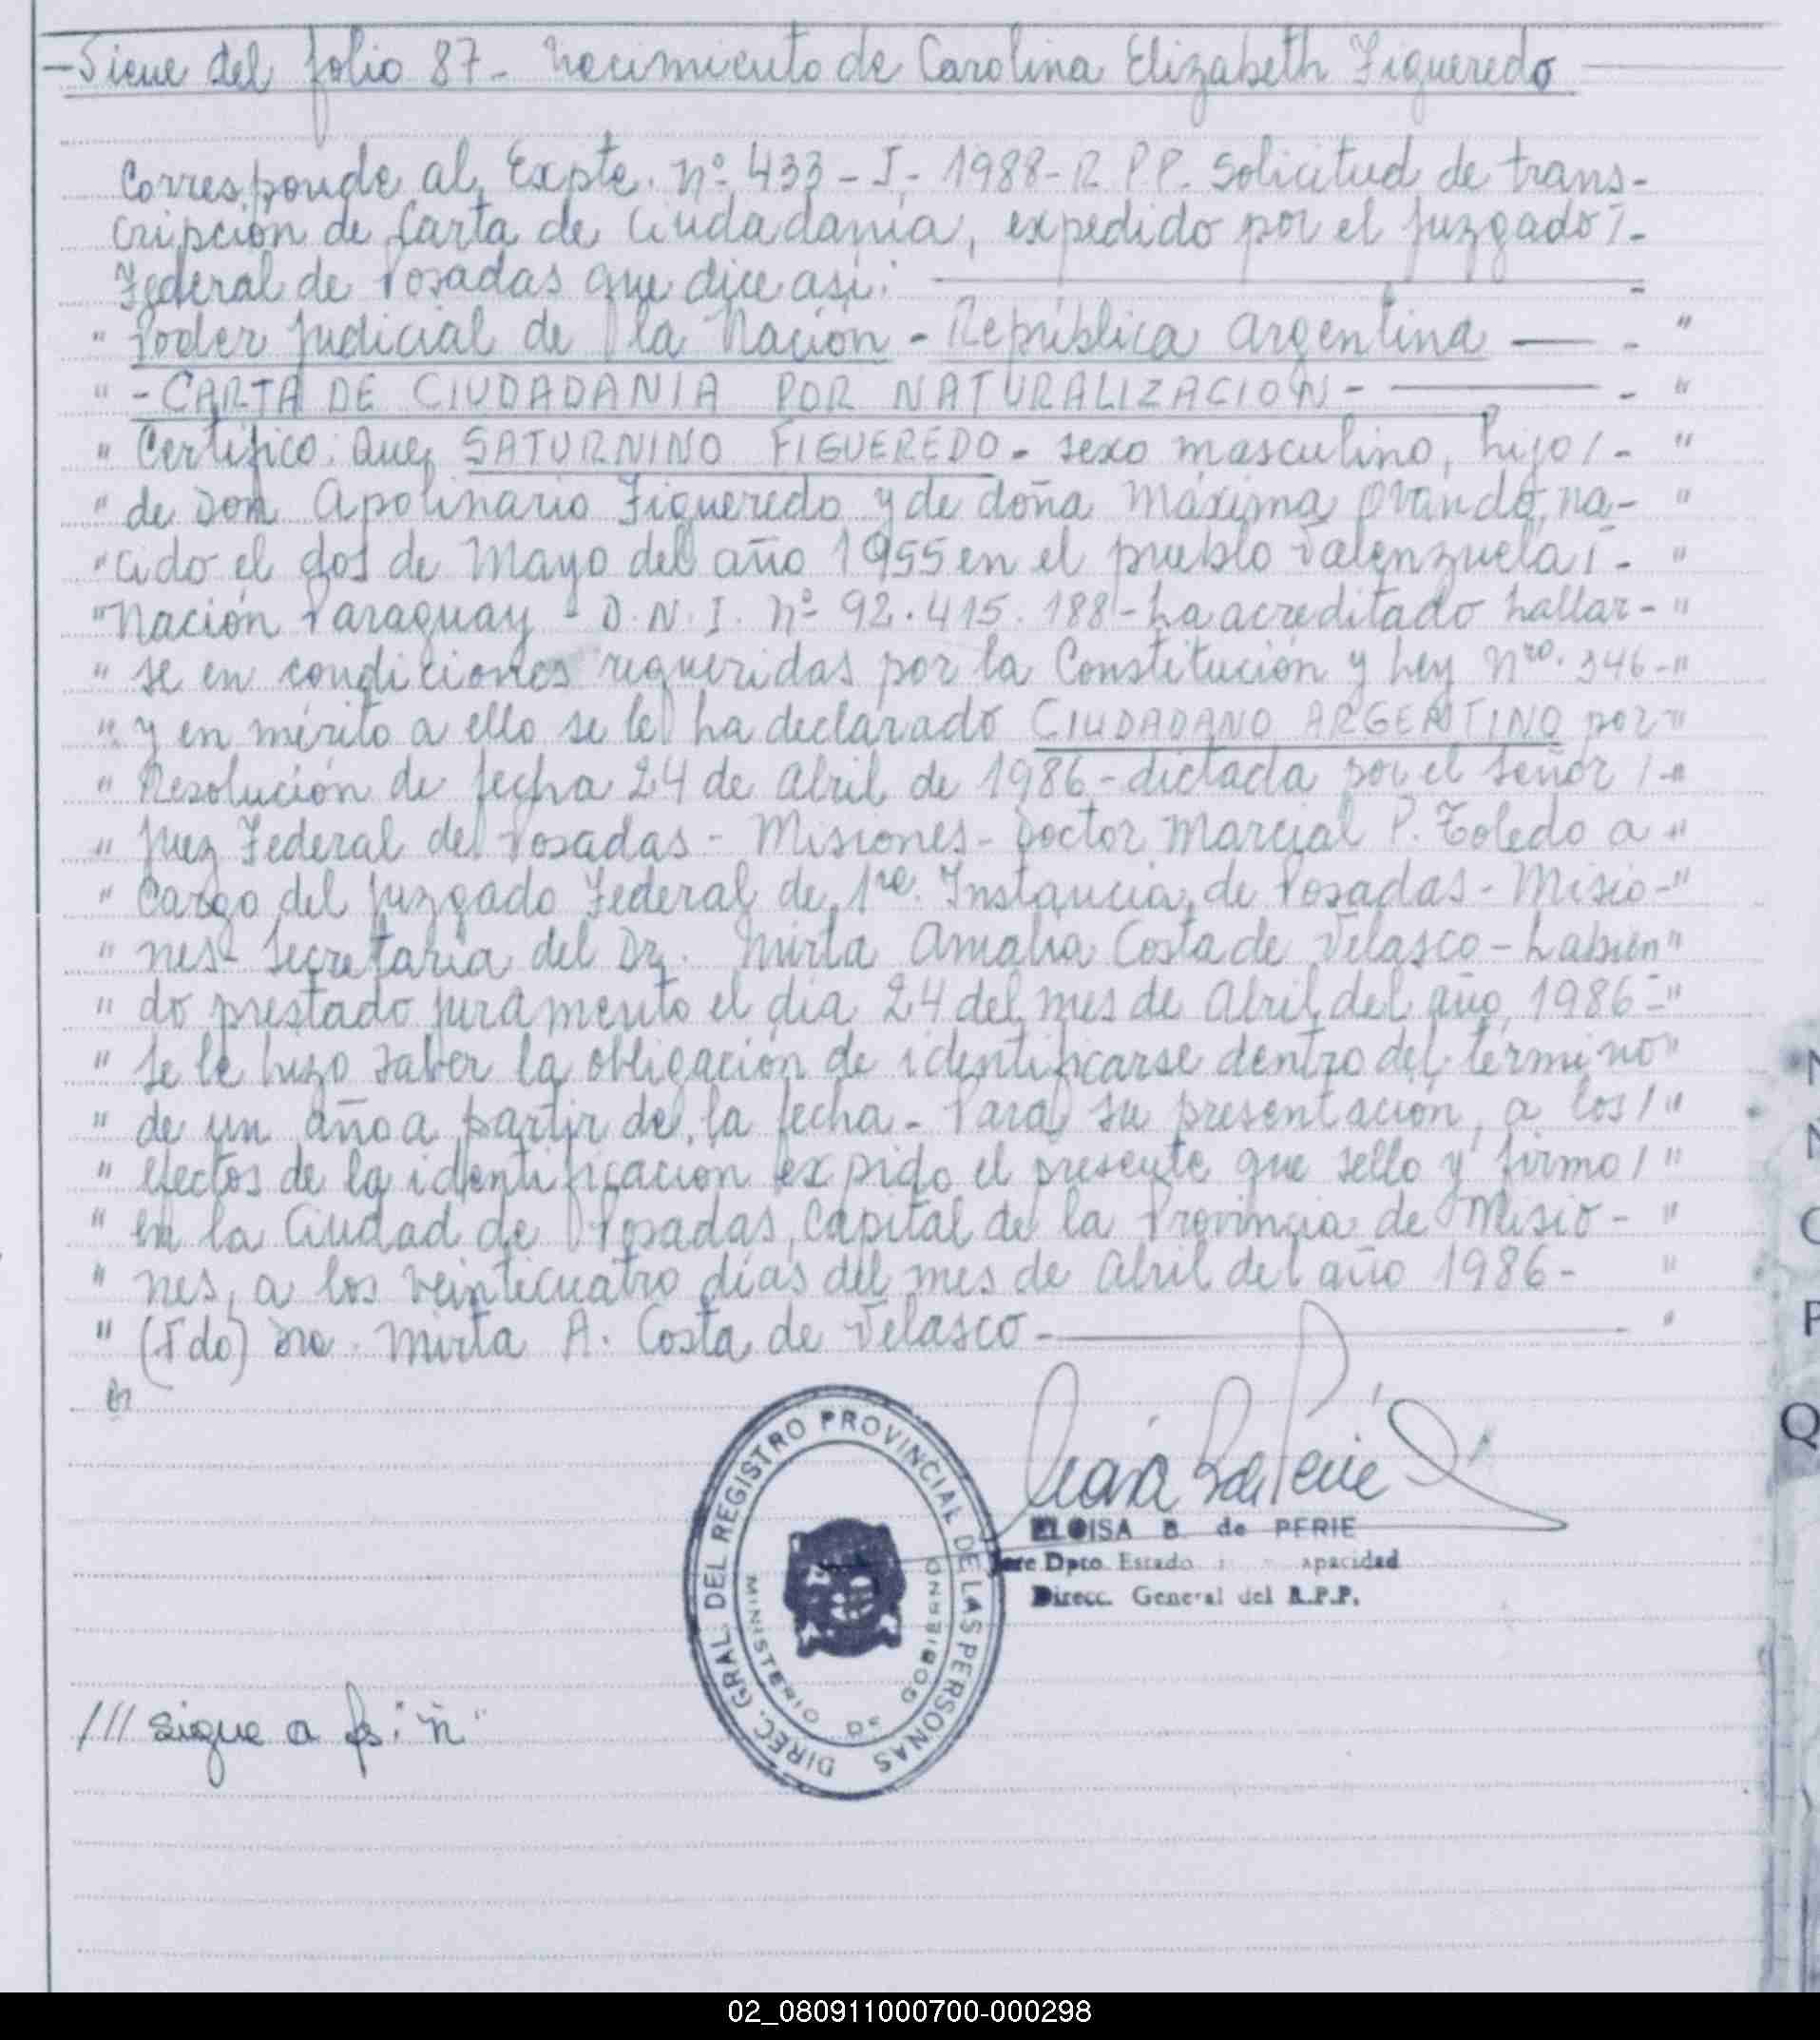 -Siene del folio 87- Nacimiento de Carolina Elizabeth Figueredo
Corresponde al Expte. nº 433-I-1988-R.P.P. Solicitud de trans-
cripción de Carta de Ciudadanía, expedido por el Juzgado/-
Federal de Posadas que dice así: -
" Poder Judicial de la Nación - República Argentina — - "
" - CARTA DE CIUDADANIA POR NATURALIZACION - — - "
" Certifico: Que, SATURNINO FIGUEREDO - sexo masculino, hijo/- "
" de Don Apolinario Figueredo y de doña Máxima Ovando, na- "
" cido el dos de Mayo del año 1955 en el pueblo Valenzuela/- "
" Nación Paraguay - D.N.I. nº 92.415.188 - ha acreditado hallar- "
" se en condiciones requeridas por la Constitución y Ley Nro. 346- "
" y en mérito a ello se le ha declarado CIUDADANO ARGENTINO por "
" Resolución de fecha 24 de Abril de 1986 - dictada por el Señor /- "
" Juez Federal de Posadas - Misiones - Doctor Marcial P. Toledo a "
" Cargo del Juzgado Federal de 1ra. Instancia de Posadas - Misio- "
" nes- Secretaría del Dr. Mirta Amalia Costa de Velasco - habien "
" do prestado juramento el día 24 del mes de Abril del año 1986- "
" Se le hizo saber la obligación de identificarse dentro del término "
" de un año a partir de la fecha - Para su presentación, a los/ "
" efectos de la identificación expido el presente que sello y firmo/ "
" en la Ciudad de Posadas, Capital de la Provincia de Misio- "
" nes, a los veinticuatro días del mes de Abril del año 1986- "
" (Fdo) Dra. Mirta A. Costa de Velasco - "
DIREC. GRAL. DEL REGISTRO PROVINCIAL DE LAS PERSONAS
MINISTERIO DE GOBIERNO
ELOISA B. de PERIE
Jefe Dpto Estado apacidad
Direcc. General del R.P.P.
/// sigue a fs: "ñ"
N
N
C
P
Q
02_080911000700-000298